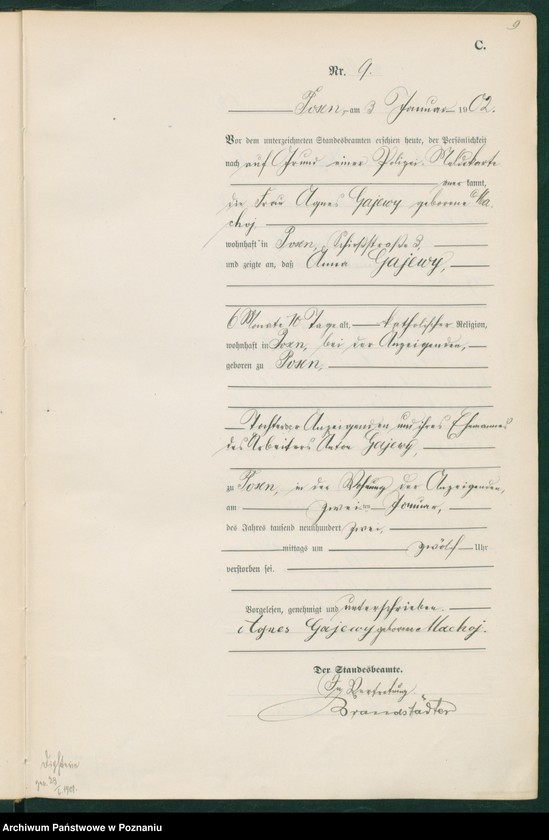 9
C.
Nr. 9.
Posen, am 3 Januar 1902.
Vor dem unterzeichneten Standesbeamten erschien heute, der Persönlichkeit
nach auf Grund einer Polizei-Meldekarte
kannt,
die Frau Agnes Gajewy geborene Ma-
choj
wohnhaft in Posen, 3,
und zeigte an, daß Anna Gajewy,
6 Monate 10 Tage alt, katholischer Religion,
wohnhaft in Posen, bei der Anzeigenden,
geboren zu Posen,
Tochter der Anzeigenden und ihres Ehemannes
des Arbeiters Anton Gajewy,
zu Posen, in der Wohnung der Anzeigenden,
am zweiten Januar,
des Jahres tausend neunhundert zwei,
mittags um zwölf Uhr
verstorben sei.
Vorgelesen, genehmigt und unterschrieben.
Agnes Gajewy geborene Machoj.
Der Standesbeamte.
In Vertretung
Brandstädter
Archiwum Państwowe w Poznaniu